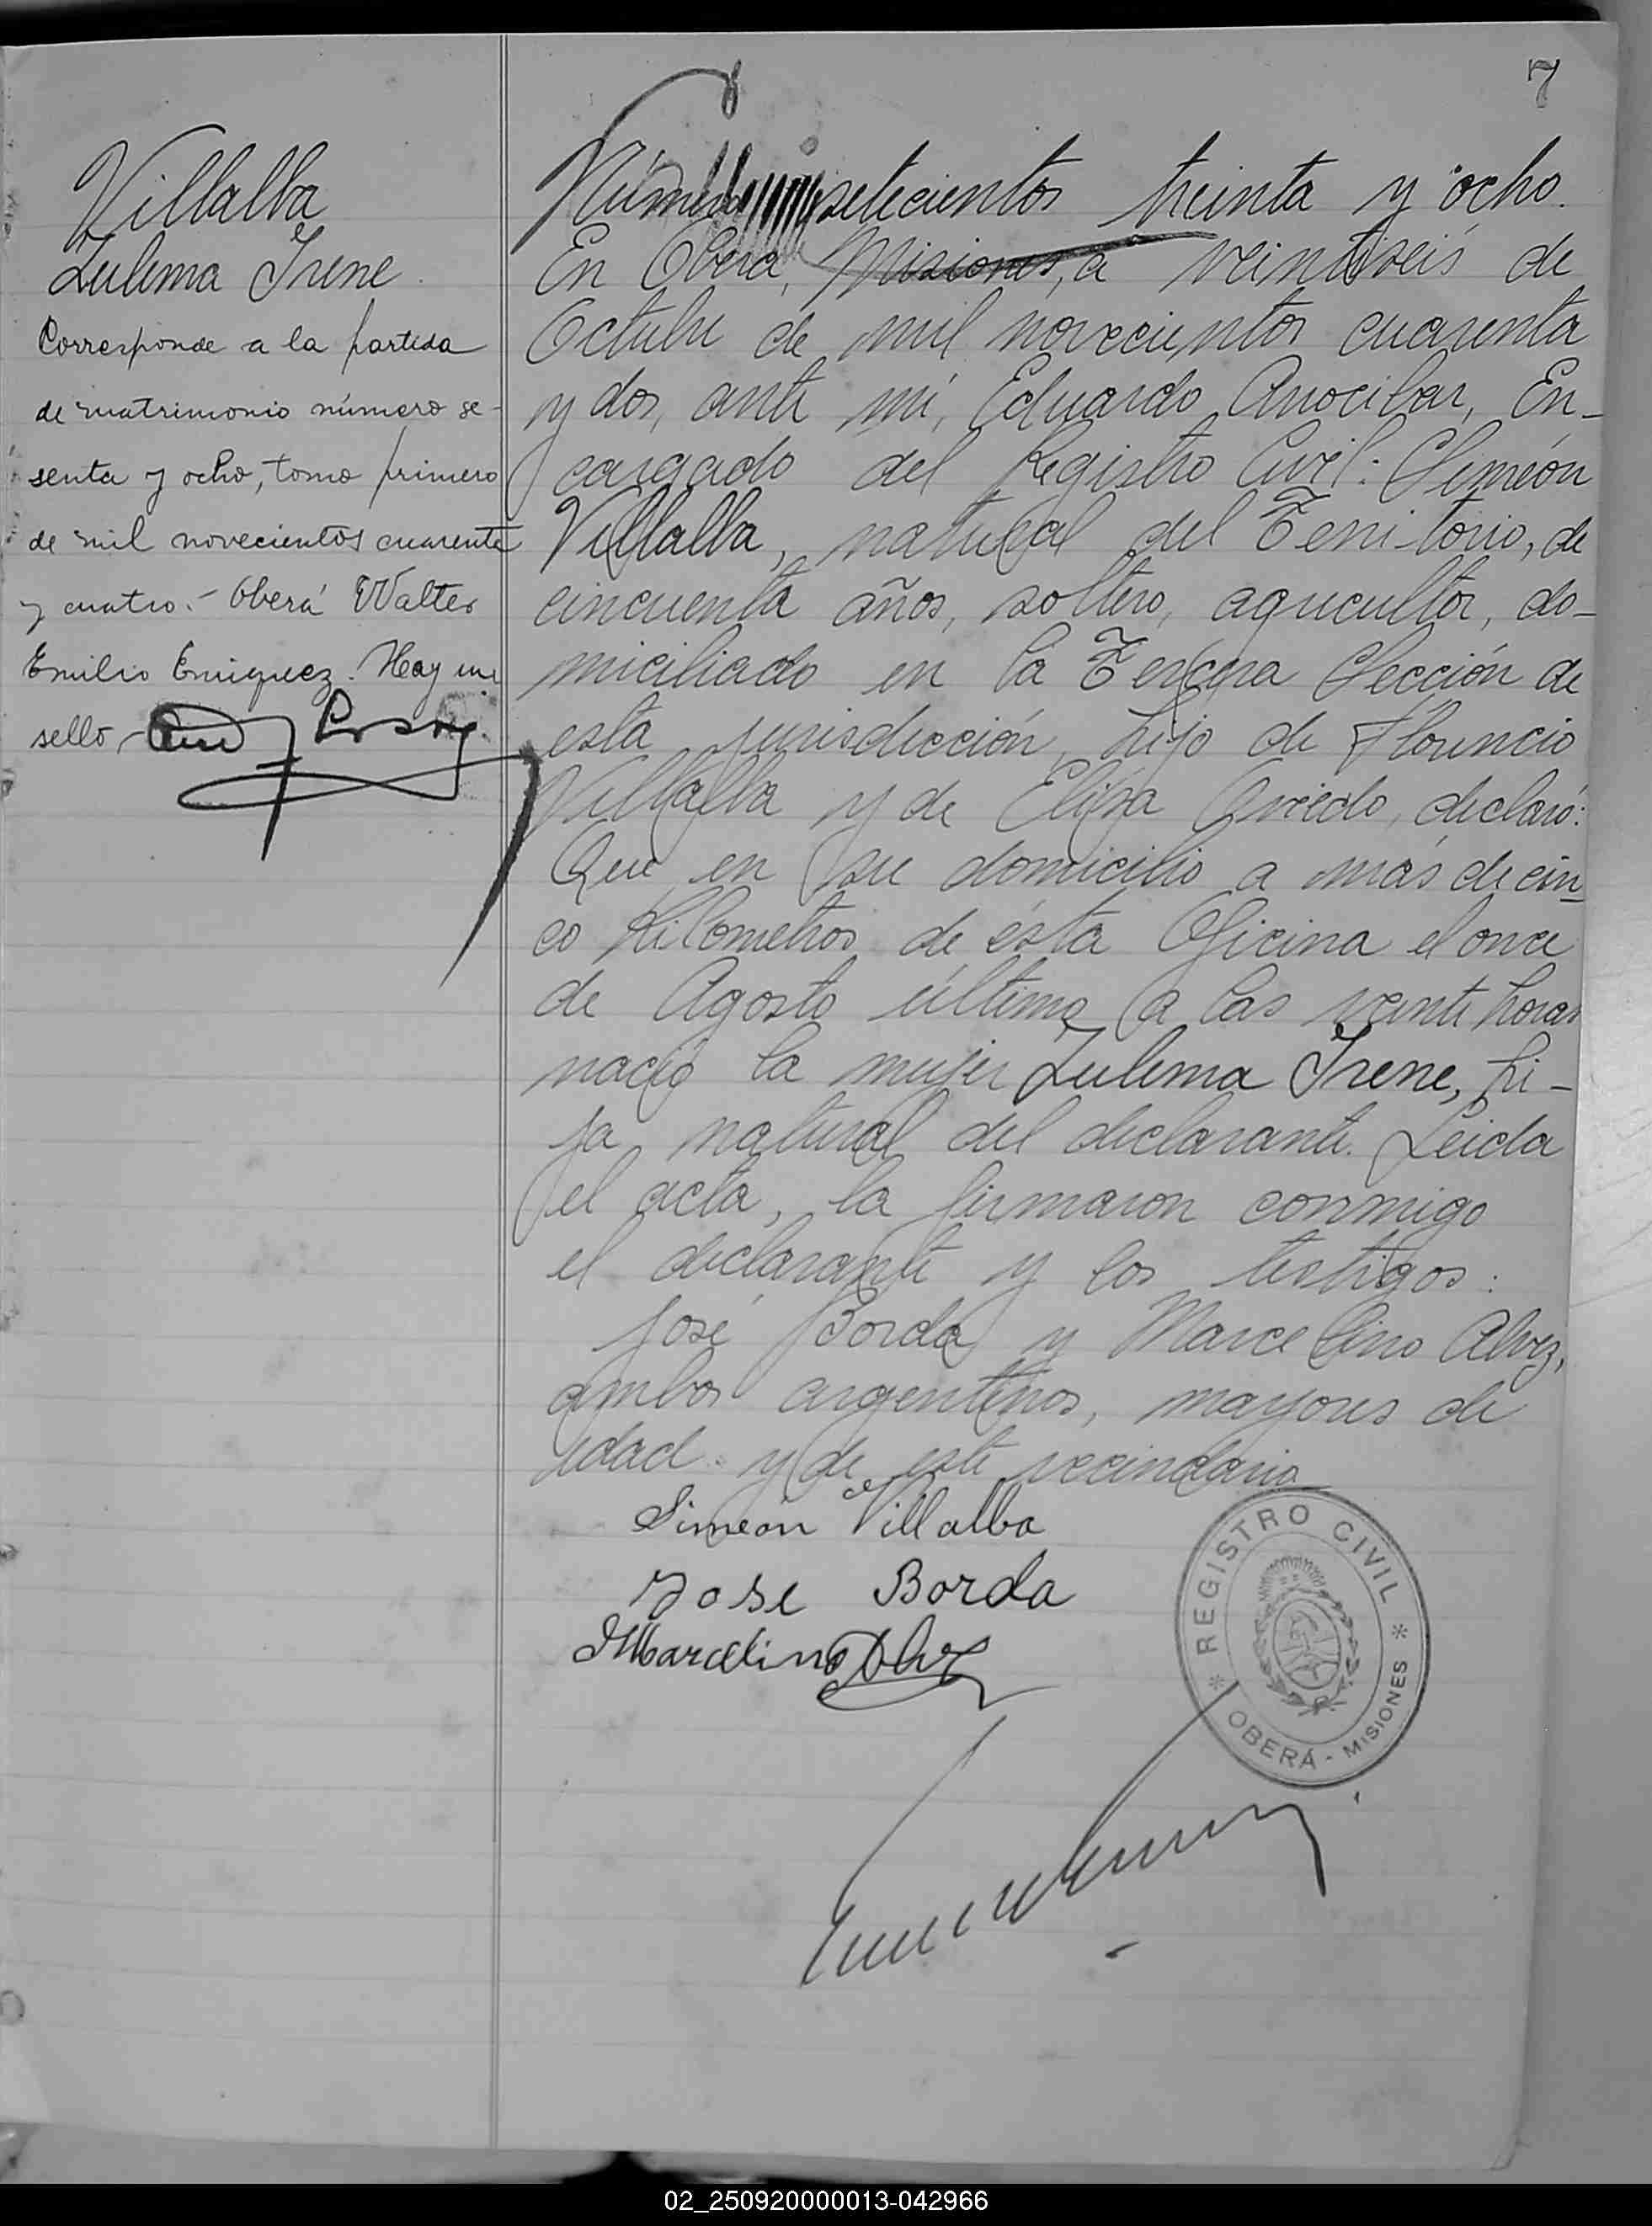 7
Villalba
Zulema Irene.
Corresponde a la partida
de matrimonio número se-
senta y ocho, tomo primero
de mil novecientos cuarenta
y cuatro.- Oberá Walter
Emilio Enriquez. Hay un
sello.-
Número setecientos treinta y ocho.
En Oberá, Misiones, a veintiseis de
Octubre de mil novecientos cuarenta
y dos, ante mí, Eduardo Anocibar, En-
cargado del Registro Civil: Simeón
Villalba, natural del Territorio, de
cincuenta años, soltero, agricultor, do-
miciliado en la Tercera Sección de
esta jurisdicción, hijo de Florencio
Villalba y de Elisa Oviedo, declaró:
Que en su domicilio a más de cin-
co kilometros de ésta Oficina el once
de Agosto último a las veinte horas
nació la mujer Zulema Irene, hi-
ja natural del declarante. Leida
el acta, la firmaron conmigo
el declarante y los testigos:
José Borda y Marcelino Alvez,
ambos argentinos, mayores de
edad y de este vecindario
Simeón Villalba
Jose Borda
Marcelino Alvez
REGISTRO CIVIL
OBERÁ - MISIONES
02_250920000013-042966